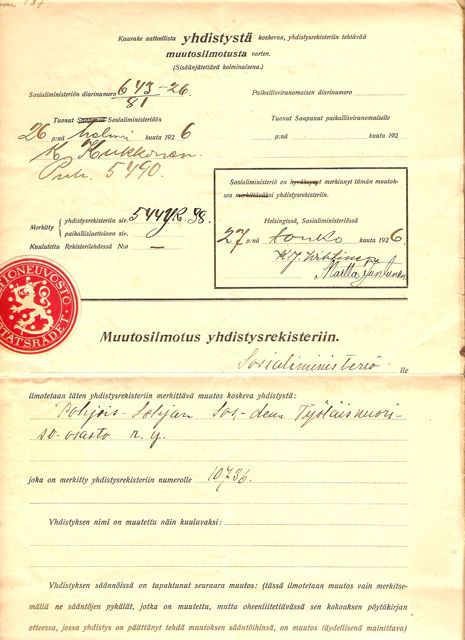 Kaavake aatteellista yhdistystä koskevaa, yhdistysrekisteriin tehtävää
muutosilmotusta varten.
(Sisäänjätettävä kolminaisena.)
Sosialiministeriön diarinumero 643-26.
81
Paikallisviranomaisen diarinumero
Tuonut Saapunut Sosialiministeriöön
26 p:nä kuuta 1926
K. Kukkonen.
Puh. 5490.
Tuonut Saapunut paikallisviranomaiselle
p:nä kuuta 192
Merkitty { yhdistysrekisteriin siv. 544
paikallisluetteloon siv.
Kuulutettu Rekisterilehdessä N:o —
Sosialiministeriö on hyväksynyt merkinnyt tämän muutok-
sen merkittäväksi yhdistysrekisteriin.
Helsingissä, Sosialiministeriössä
27 p:nä touko kuuta 1926.
Martta Juntunen
Muutosilmotus yhdistysrekisteriin.
Sosialiministeriö lle
ilmotetaan täten yhdistysrekisteriin merkittävä muutos koskeva yhdistystä:
Pohjois- Sos.-dem. Työläisnuori-
so-osasto r. y.
joka on merkitty yhdistysrekisteriin numerolle 10736.
Yhdistyksen nimi on muutettu näin kuuluvaksi:
Yhdistyksen säännöissä on tapahtunut seuraava muutos: (tässä ilmotetaan muutos vain merkitse-
mällä ne sääntöjen pykälät, jotka on muutettu, mutta oheenliitettävässä sen kokouksen pöytäkirjan
otteessa, jossa yhdistys on päättänyt tehdä muutoksen sääntöihinsä, on muutos täydellisenä mainittava)